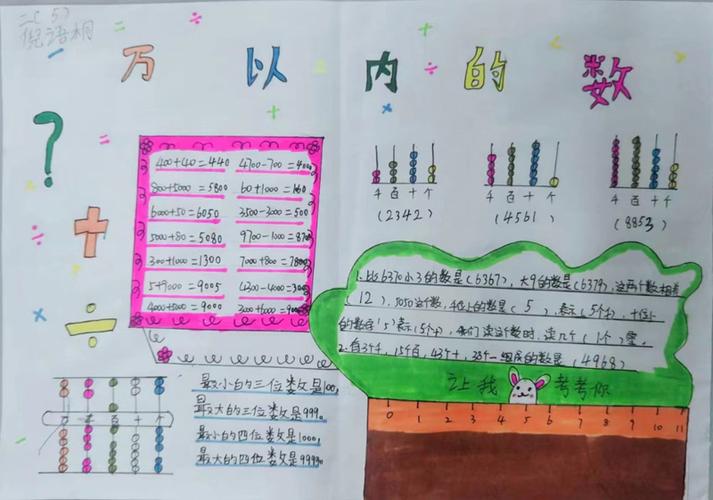 二(5)
倪语桐
万以内的数
?
400+40=440 4700-700=400
800+5000=5800 60+1000=160
6000+50=6050 3500-3000=500
5000+80=5080 9700-1000=870
300+1000=1300 7000+800=7800
5+9000=9005
4000+5000=9000
千 百 十 个
(2342)
(4561)
千 百 十 个
(8853)
千 百 十 个
1.比6370小3的数是(6367),大9的数是(6379),这两个数相差
(12),5050这个数,千位上的数是(5),表示(5个千),十位上
的数字(5)表示(5个十),我们读这个数时,读几个(1个)零。
2.由3个千,15个百,43个十,38个一组成的数是(4968)
让我考考你
0 1 2 3 4 5 6 7 8 9 10 11
最小的三位数是100,
最大的三位数是999。
最小的四位数是1000,
最大的四位数是9999。